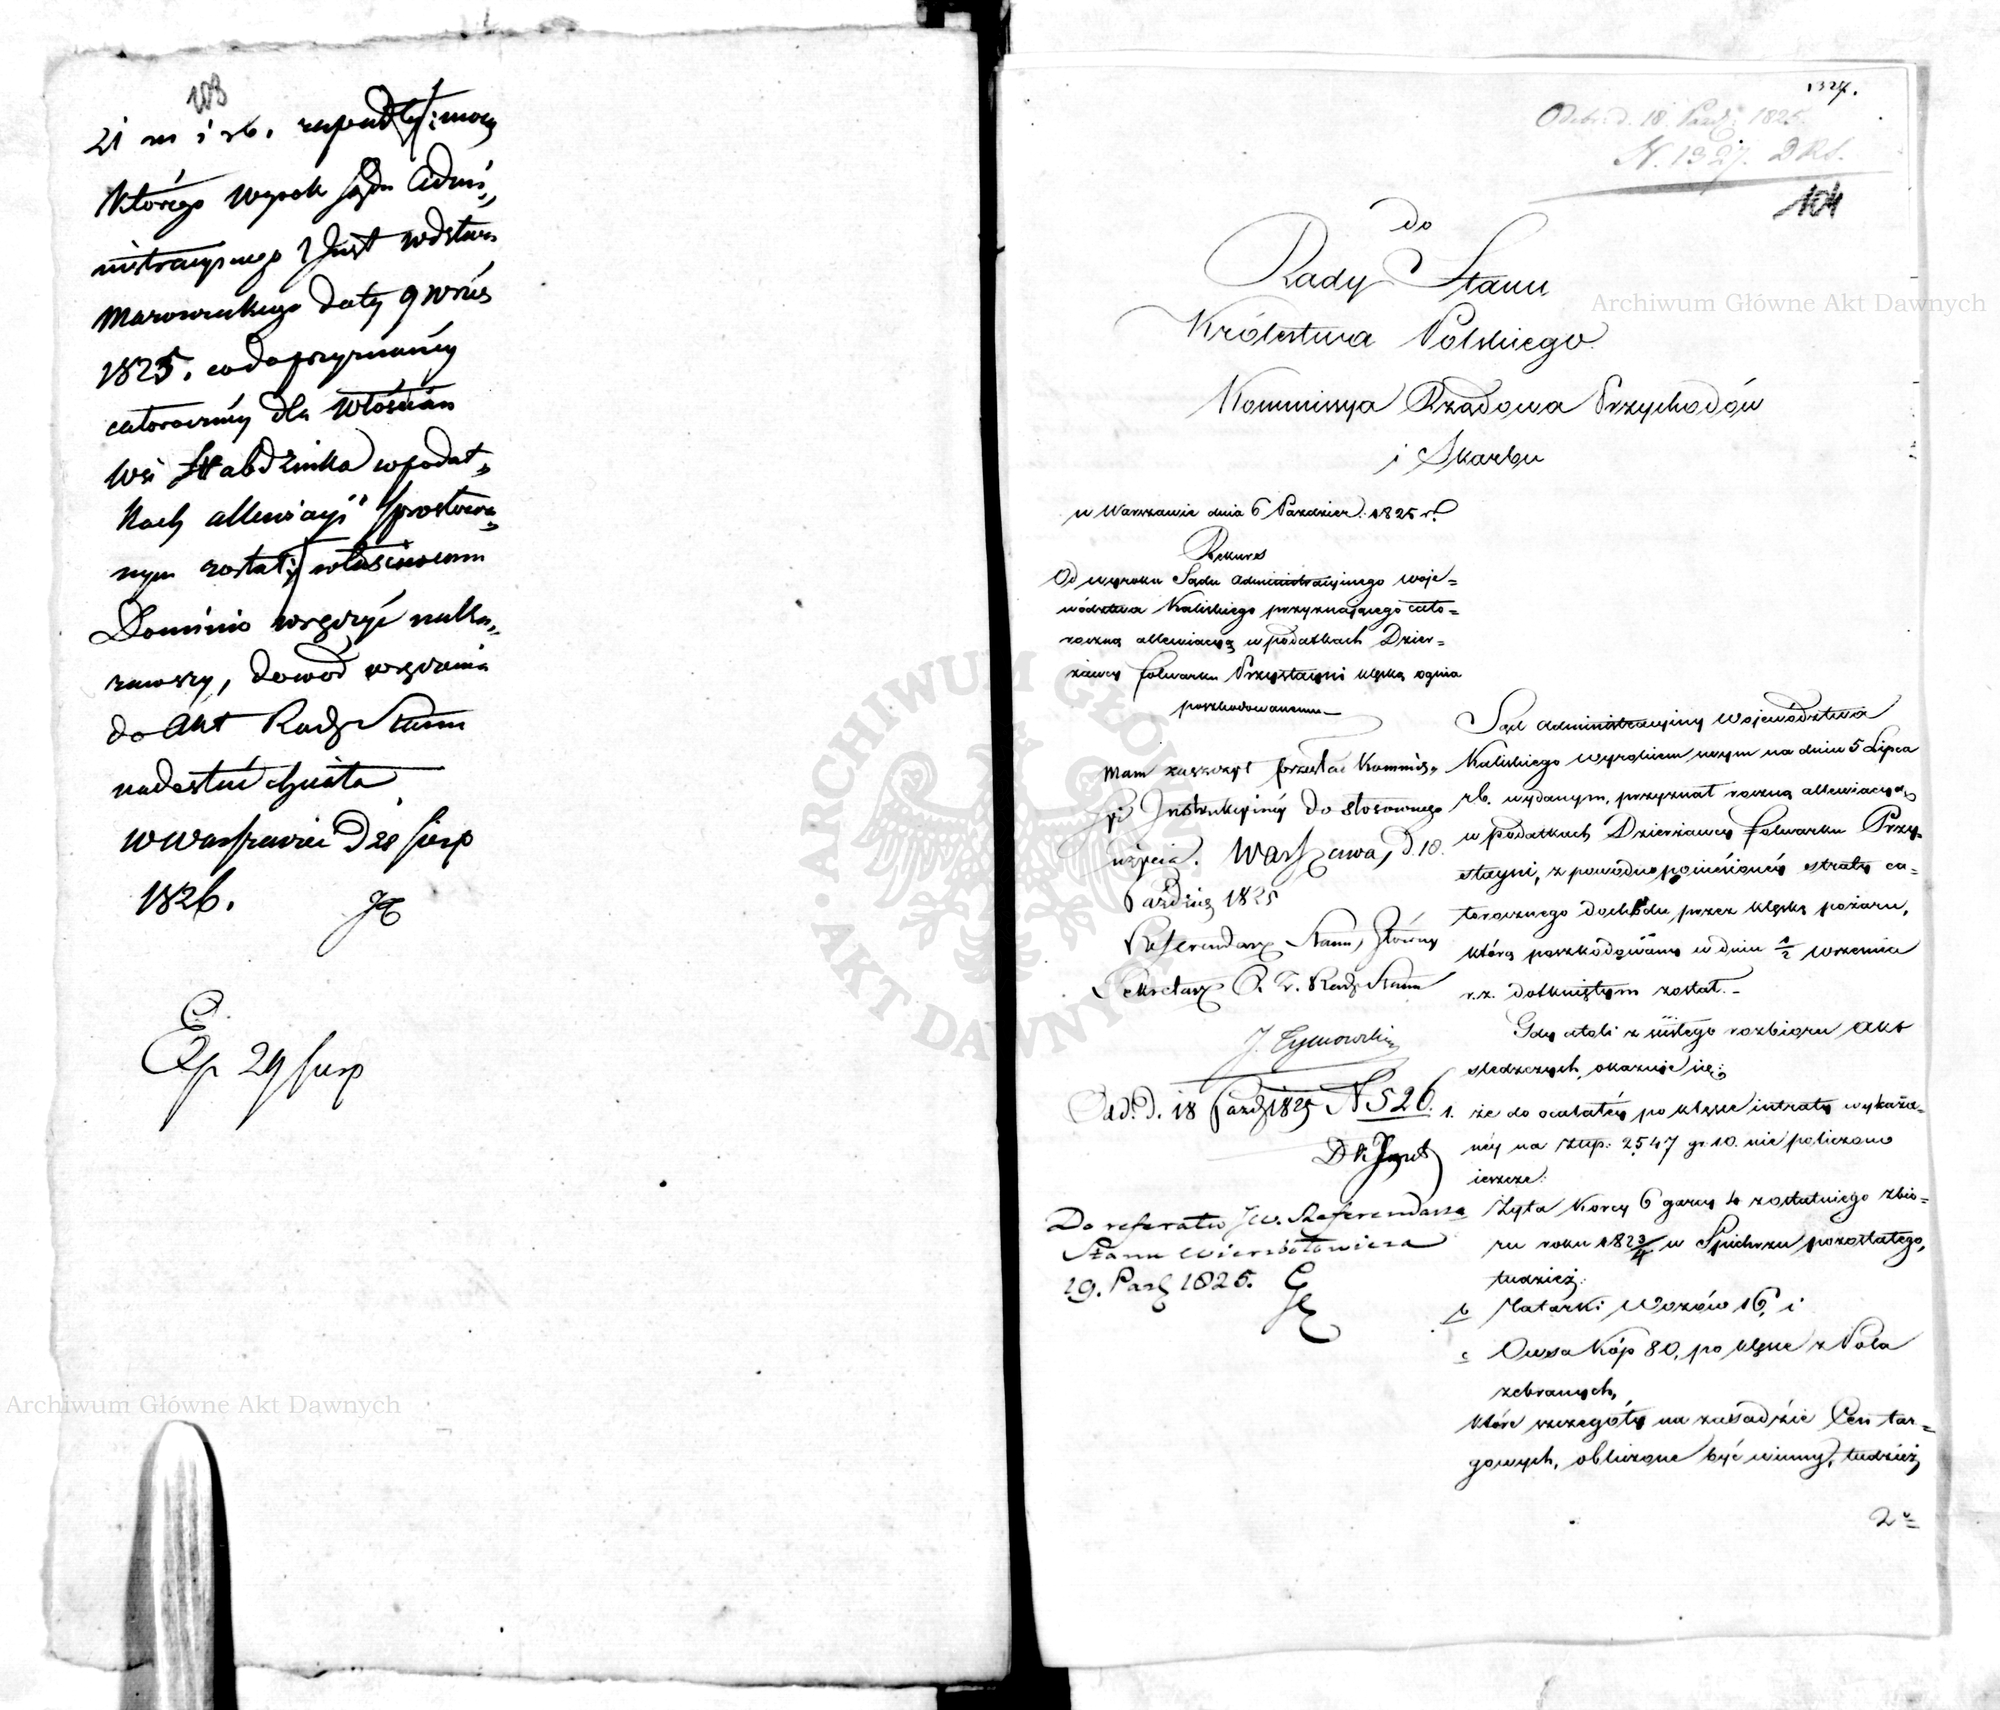 103
21 m i rb. zapadły: mocą
którego wyrok sądu Admi,,
nistracyjnego Wdztwa
Mazowieckiego daty 9 Wrześ
1825. co do przyznanéy
całorocznéy dla Włościan
Wsi w podat,,
kach allewiacyi sprostowa,,
nym został, właściwem
Dominio wręczyć nakaz
zawszy, dowód wręczenia
do Akt Rady Stanu
nadesłać chciała
w Warszawie D 28 Sierp
1826.
Exp 29 Sierp
1327.
Odebr. d. 18. Paźd: 1825.
N. 1327. D.R.S.
104
do
Rady Stanu
Królestwa Polskiego.
Kommissya Rządowa Przychodów
i Skarbu
w Warszawie dnia 6 Paździer: 1825 r.
Rekurs
Od wyroku Sądu Administracyinego woje=
wództwa Kaliskiego przyznaiącego cało=
roczną allewiacyą w podatkach Dzier=
żawcy folwarku Przystayni klęską ognia
poszkodowanemu
Mam zaszczyt przesłać Kommis,,
syi Instrukcyinéy do stosownego
użycia. Warszawa, d. 18.
Paździer 1825
Referendarz Stanu, Główny
Sekretarz Rady Stanu
J. Tymowski
Odd. D. 18 Paźdz 1825 N 526.
Do referatu JW. Referendarza
Stanu Wierzbołowicza
19. Paźd 1825.
Sąd Administracyiny Województwa
Kaliskiego wyrokiem swym na dniu 5 Lipca
rb. wydanym, przyznał roczną allewiacyą
w podatkach Dzierżawcy folwarku Przy=
stayni, z powodu poniesionéy straty ca=
łorocznego dochodu, przez klęskę pożaru,
którą poszkodowany w dniu 1/2 września
r.z. dotkniętym został.
Gdy atoli z ścisłego rozbioru akt
śledczych, okazuie się:
1. że do ocalałéy po klęsce intraty wykaza=
néy na złtp: 2547 gr 10. nie policzono
ieszcze:
Żyta Korcy 6 garcy 4 z ostatniego zbio=
ru roku 1823/4 w Spichrzu pozostałego,
tudzież:
b Tatarki Wozów 16, i
c Owsa Kóp 80, po klęsce z Pola
zebranych,
które szczegóły na zasadzie Cen tar=
gowych, obliczone być winny, tudzież
2°
Archiwum Główne Akt Dawnych
Archiwum Główne Akt Dawnych
ARCHIWUM GŁÓWNE AKT DAWNYCH